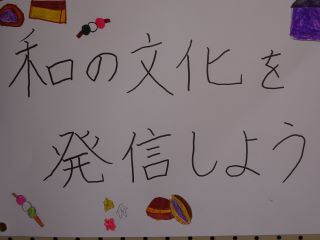 和の文化を
発信しよう